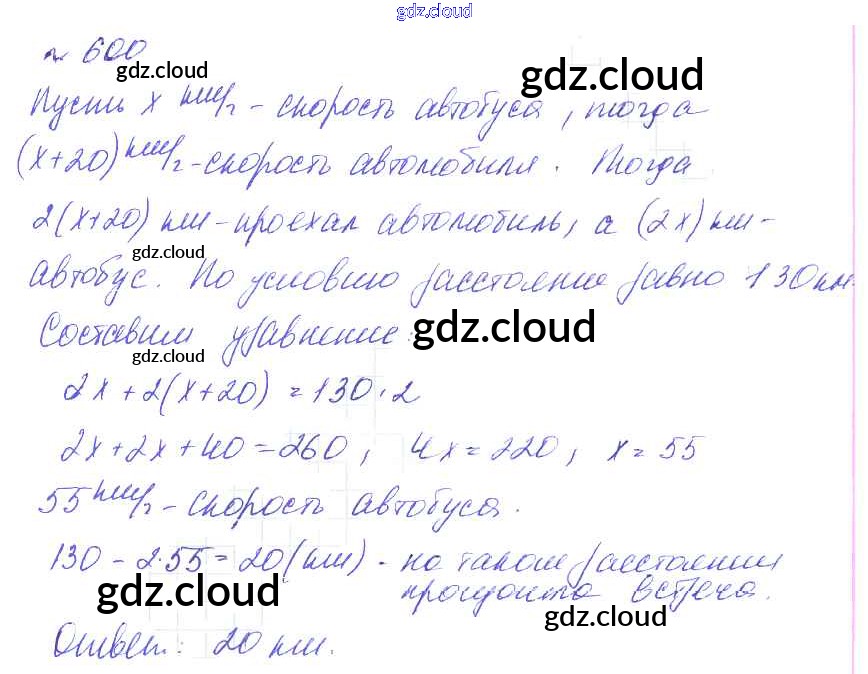 gdz.cloud
№ 600
gdz.cloud
gdz.cloud
Пусть x км/ч - скорость автобуса, тогда
(x+20) км/ч - скорость автомобиля. Тогда
2(x+20) км - проехал автомобиль, а (2x) км -
gdz.cloud
автобус. По условию расстояние равно 130 км.
Составим уравнение:
gdz.cloud
gdz.cloud
2x + 2(x+20) = 130·2
2x + 2x + 40 = 260, 4x = 220, x = 55
55 км/ч - скорость автобуса.
130 - 2·55 = 20 (км) - на таком расстоянии
произошла встреча.
gdz.cloud
gdz.cloud
Ответ: 20 км.